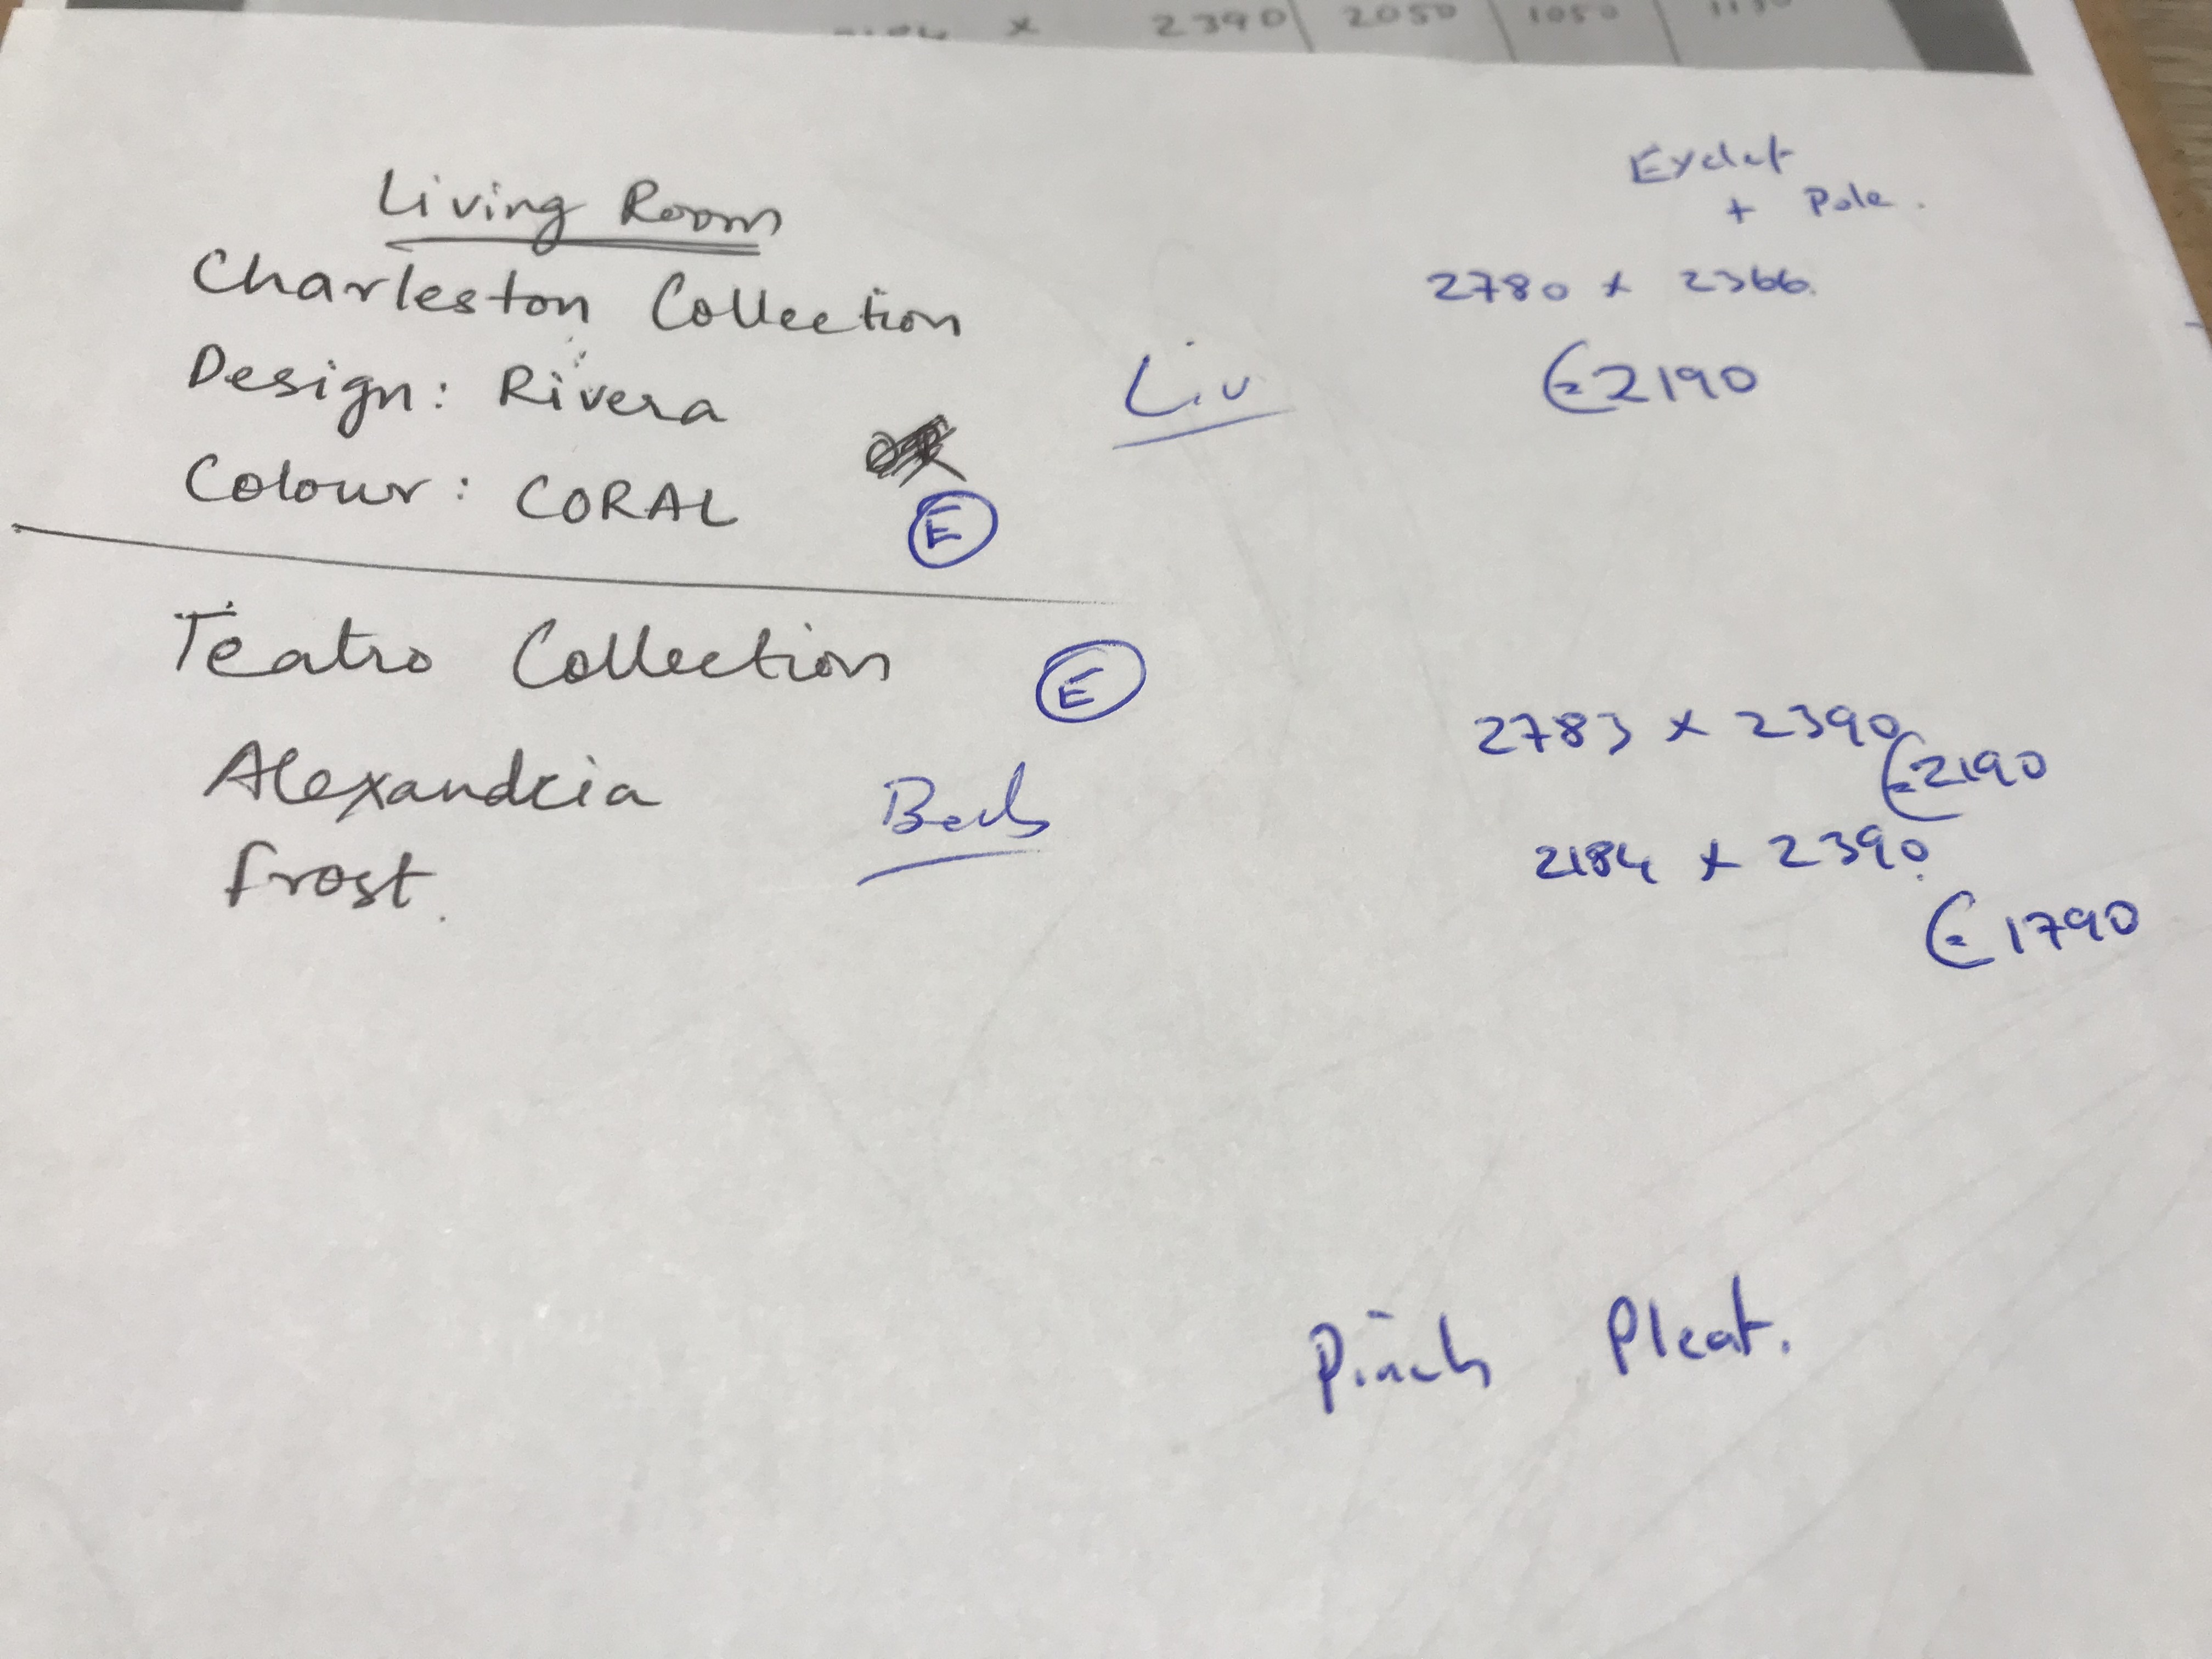 x 2390 2050 1050
Living Room
Eyelet
+ Pole.
Charleston Collection
2780 x 2366.
Design: Rivera
Liv
€2190
Colour: CORAL
E
Teatro Collection
E
2783 x 2390
€2190
Alexandria
2184 x 2390.
Frost.
€1790
Pinch Pleat.